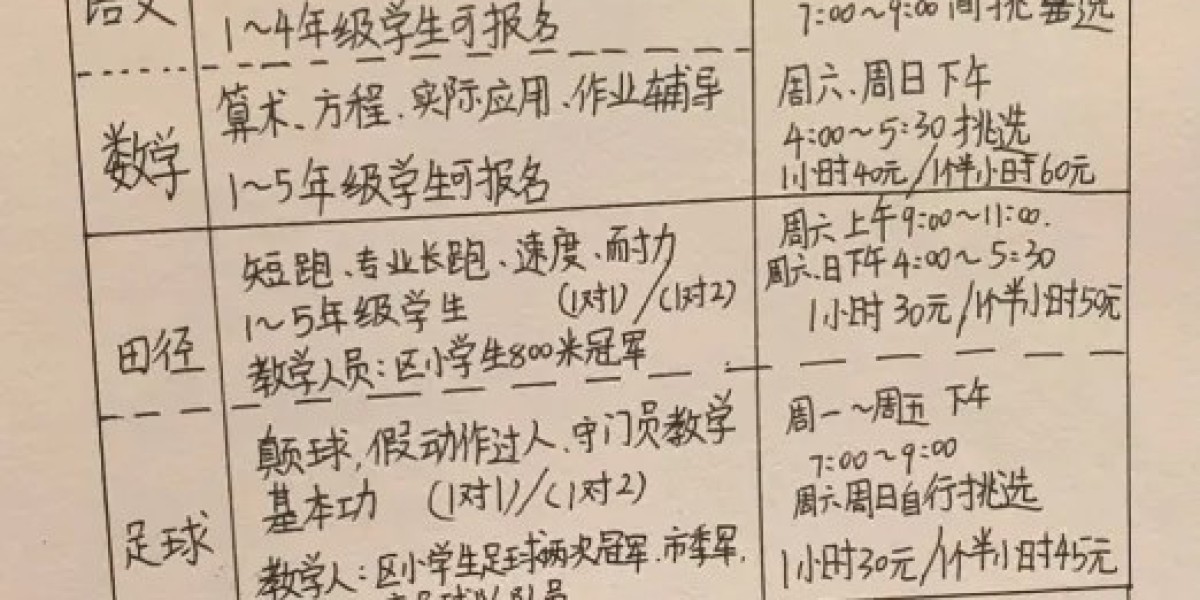 语文
1~4年级学生可报名
7:00~9:00间挑选
数学
算术、方程、实际应用、作业辅导
1~5年级学生可报名
周六、周日下午
4:00~5:30挑选
1小时40元/1个半小时60元
田径
短跑、专业长跑、速度、耐力
1~5年级学生 (1对1)/(1对2)
教学人员:区小学生800米冠军
周六上午9:00~11:00.
周六、日下午4:00~5:30
1小时30元/1个半小时50元
足球
颠球,假动作过人、守门员教学
基本功 (1对1)/(1对2)
教学人:区小学生足球两次冠军.市季军,
周一~周五下午
7:00~9:00
周六周日自行挑选
1小时30元/1个半小时45元